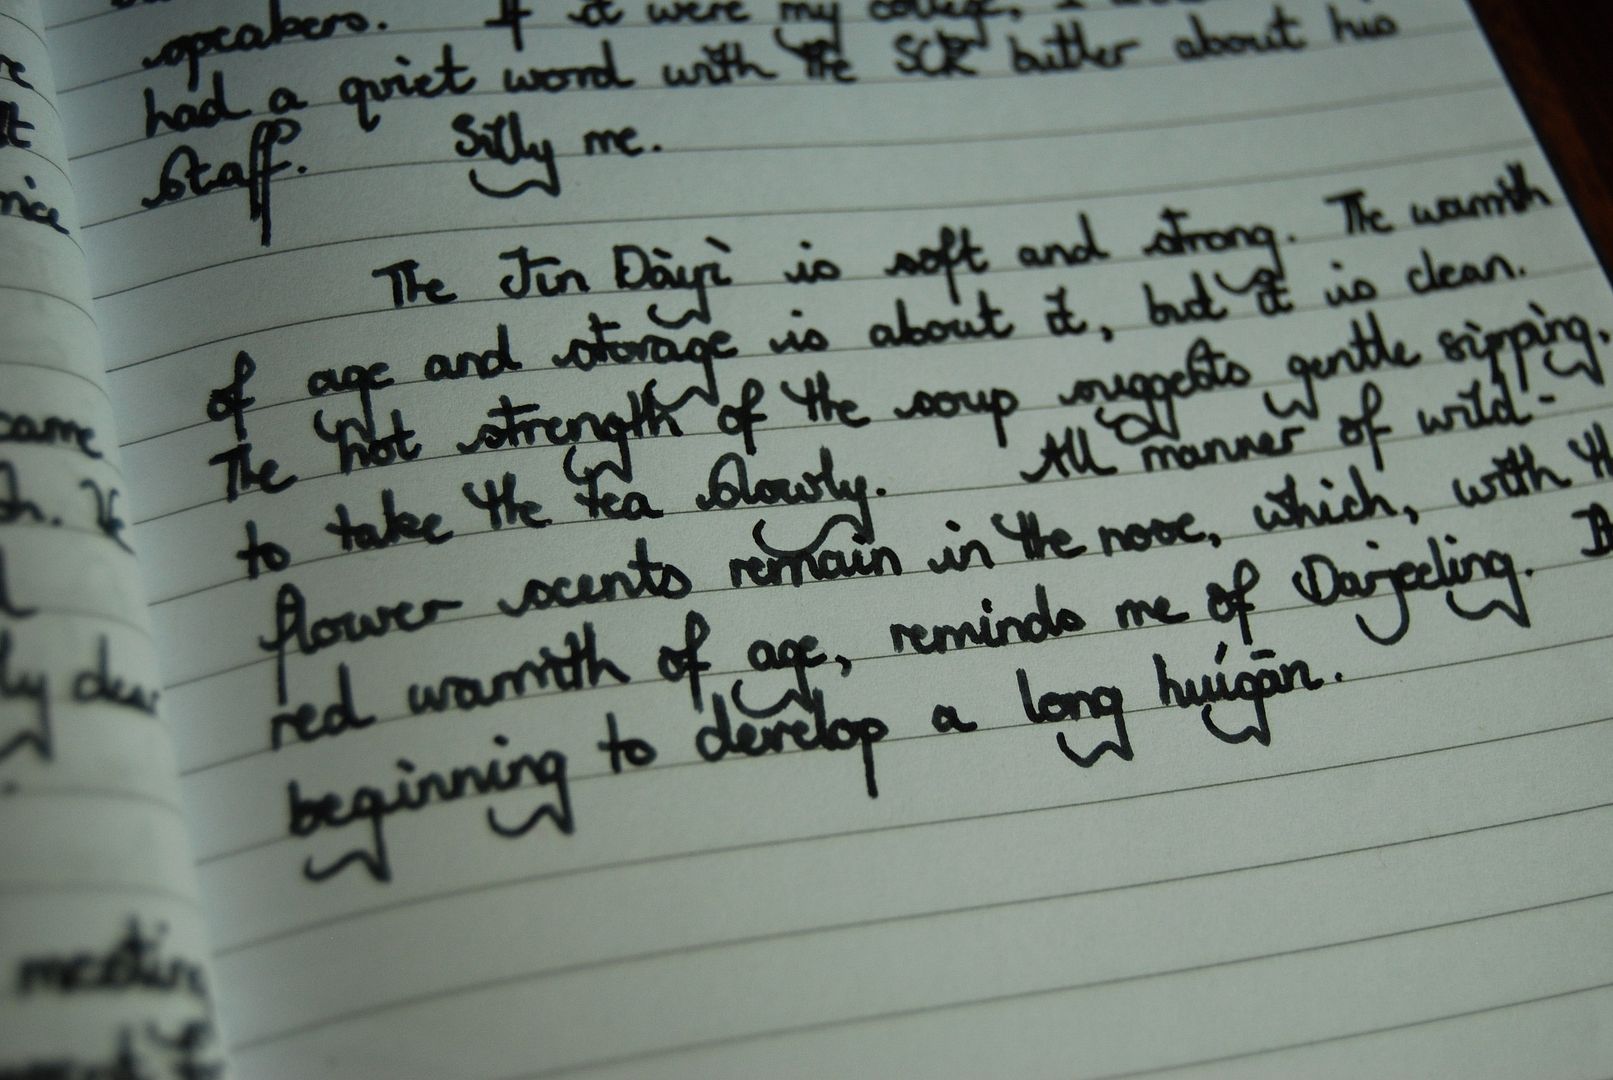 speakers. If it were my college, I
had a quiet word with the SCR butler about his
staff. Silly me.
The Jīn Dàyì is soft and strong. The warmth
of age and storage is about it, but it is clean.
The hot strength of the soup suggests gentle sipping,
to take the tea slowly. All manner of wild-
flower scents remain in the nose, which, with th
red warmth of age, reminds me of Darjeeling.
beginning to develop a long huígān.
came
meeting